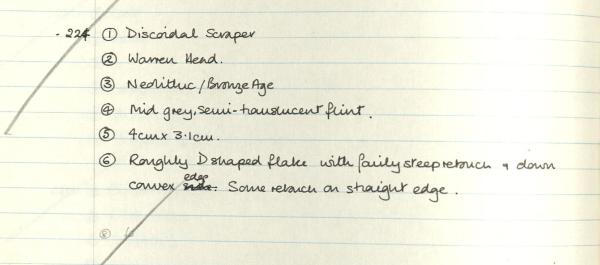 - 224 ① Discoidal Scraper
② Warren Head.
③ Neolithic/Bronze Age
④ Mid grey, semi-translucent flint.
⑤ 4cm x 3.1cm.
⑥ Roughly D shaped flake with fairly steep retouch & down
convex edge. Some retouch on straight edge.
⑧